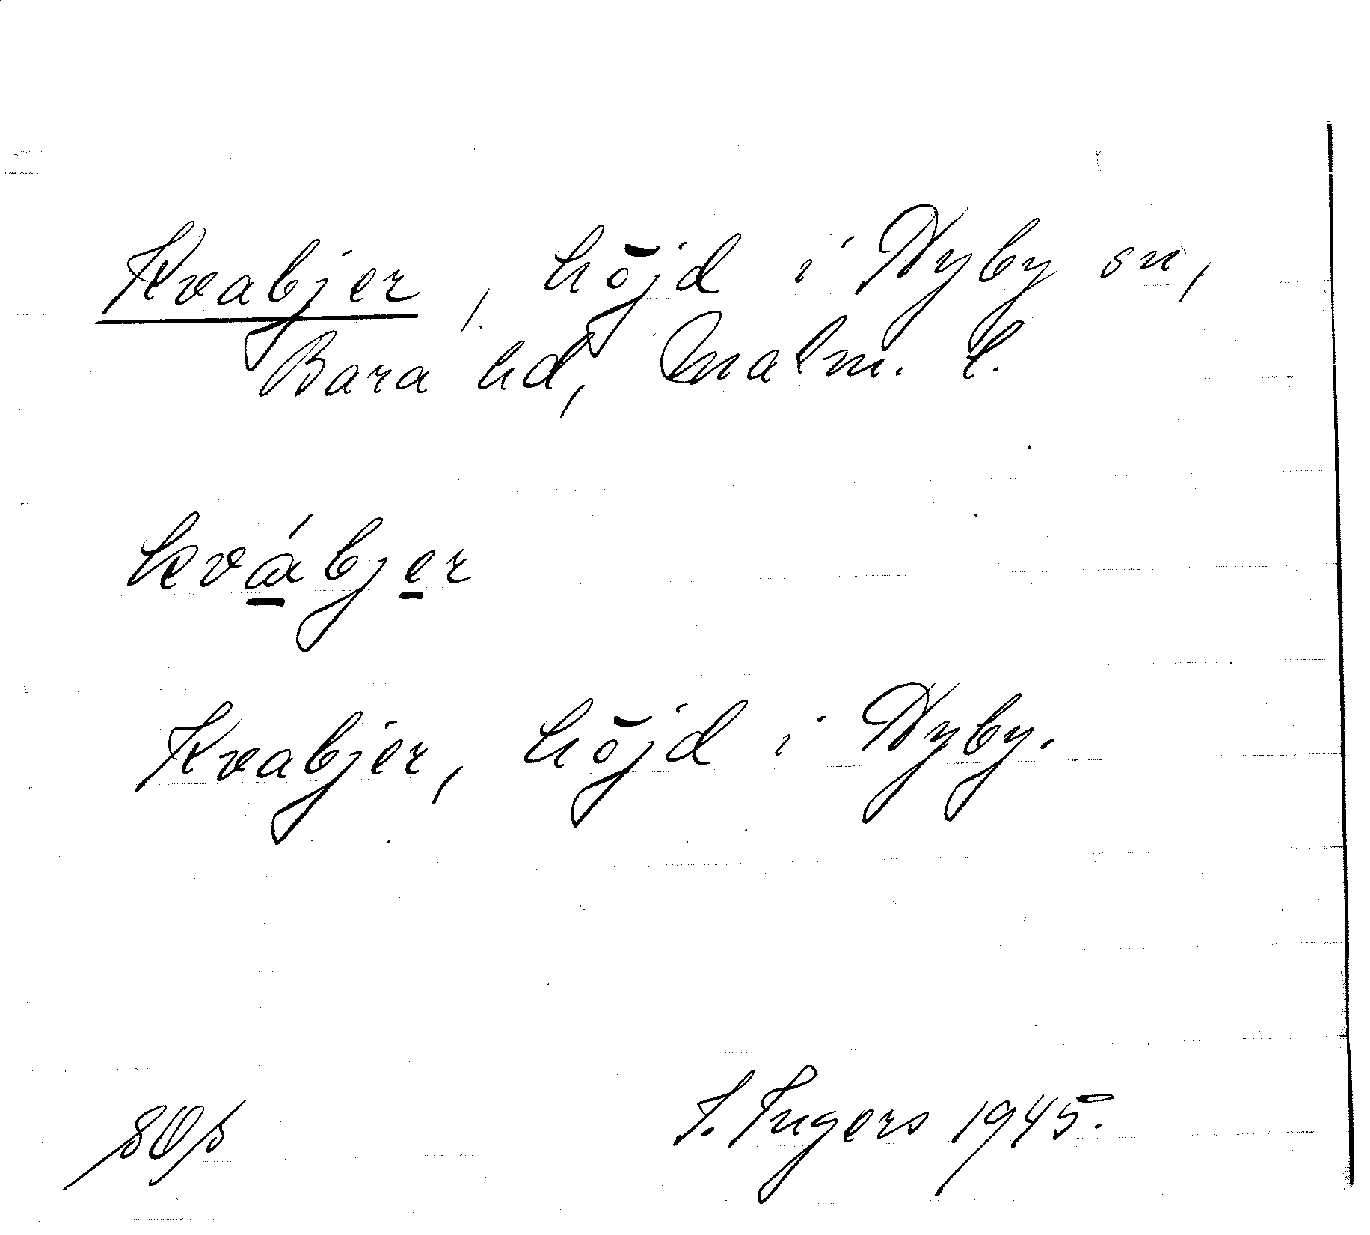 Kvabjer, höjd i Nyby sn,
Bara hd, Malm. l.
kvábjer
Kvabjer, höjd i Nyby.
I. Ingers 1945.